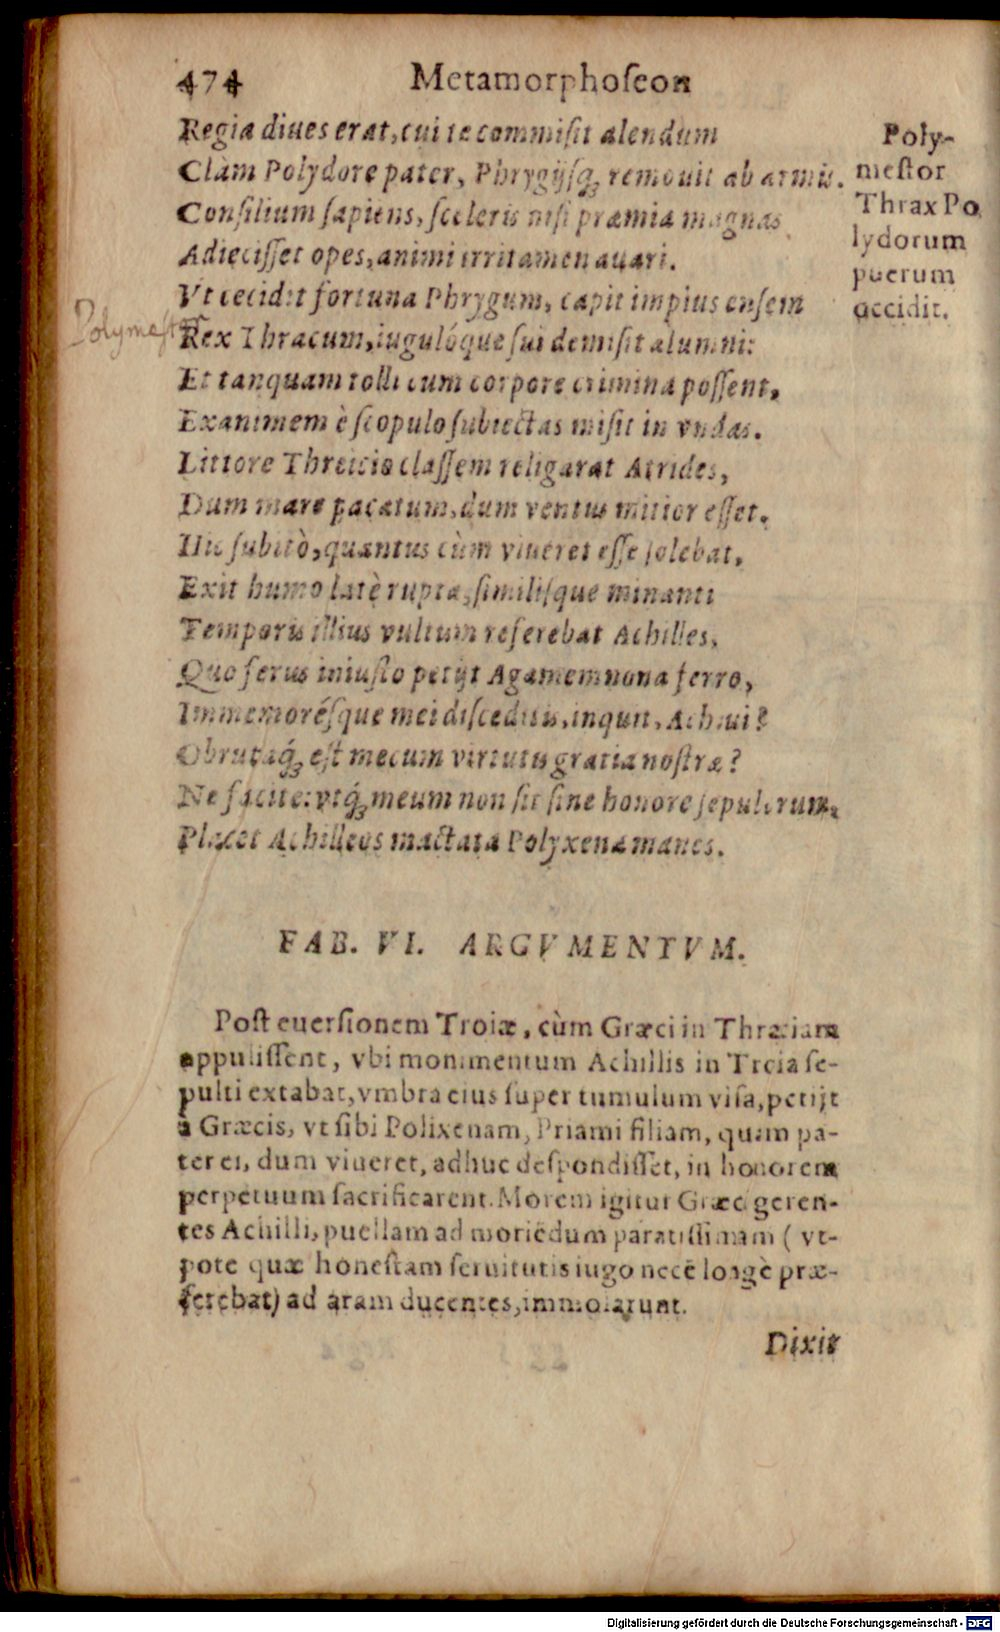 474 Metamorphoſeon
Regia diues erat, cui te commiſit alendum
Clàm Polydore pater, Phrygijſq́ꝫ remouit ab armis.
Conſilium ſapiens, ſceleris niſi præmia magnas
Adieciſſet opes, animi irritamen auari.
Vt cecidit fortuna Phrygum, capit impius enſem
Rex Thracum, iugulóque ſui demiſit alumni:
Et tanquam tolli cum corpore crimina poſſent,
Exanimem è ſcopulo ſubiectas miſit in vndas.
Littore Threicio claſſem religarat Atrides,
Dum mare pacatum, dum ventus mitior eſſet.
Hic ſubitò, quantus cùm viueret eſſe ſolebat,
Exit humo latè rupta, ſimiliſque minanti
Temporis illius vultum referebat Achilles,
Quo ferus iniuſto petijt Agamemnona ferro,
Immemoréſque mei diſceditis, inquit, Achiui?
Obrutaq́ꝫ eſt mecum virtutis gratia noſtræ?
Ne facite: vtq́ꝫ meum non ſit ſine honore ſepulcrum,
Placet Achilleos mactata Polyxena manes.
Poly-
meſtor
Thrax Po
lydorum
puerum
occidit.
Polymeſtor
FAB. VI. ARGVMENTVM.
Poſt euerſionem Troiæ, cùm Græci in Thraciam
appuliſſent, vbi monimentum Achillis in Troia ſe-
pulti extabat, vmbra eius ſuper tumulum viſa, petijt
à Græcis, vt ſibi Polixenam, Priami filiam, quam pa-
ter ei, dum viueret, adhuc deſpondiſſet, in honorem
perpetuum ſacrificarent. Morem igitur Græci geren-
tes Achilli, puellam ad moriẽdum paratiſſimam ( vt-
pote quæ honeſtam ſeruitutis iugo necẽ longè præ-
ferebat) ad aram ducentes, immolarunt.
Dixit
Digitalisierung gefördert durch die Deutsche Forschungsgemeinschaft - DFG